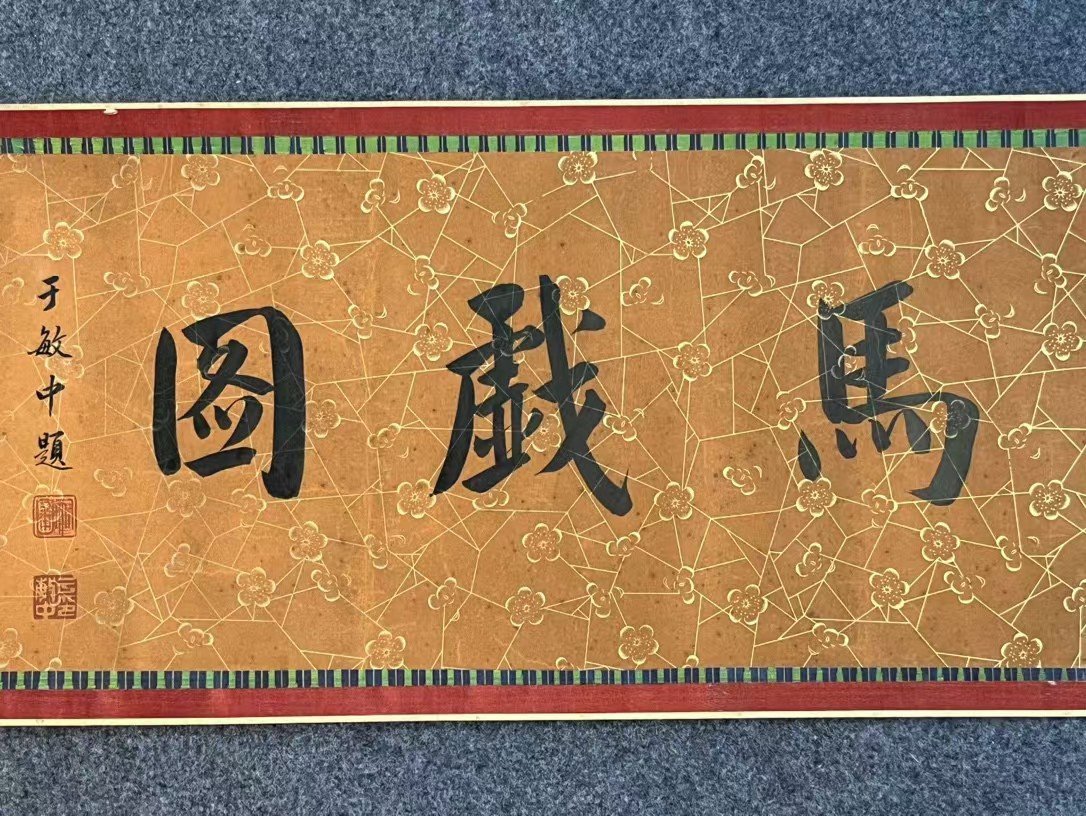 馬戲圖
于敏中題